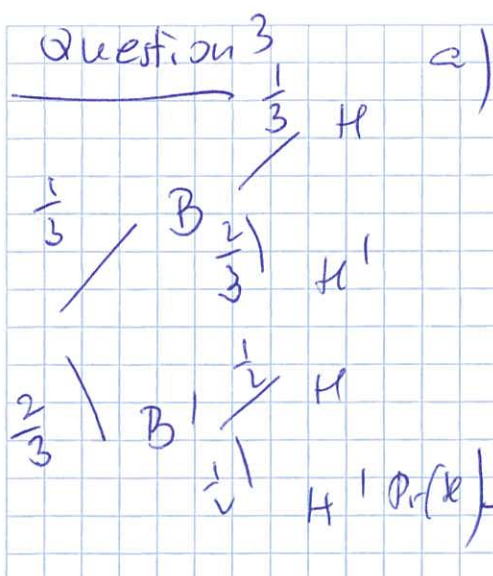 Question 3 a)
1/3 H
1/3 B
2/3 H'
1/2 H
2/3 B'
1/2 H' Pr(H)